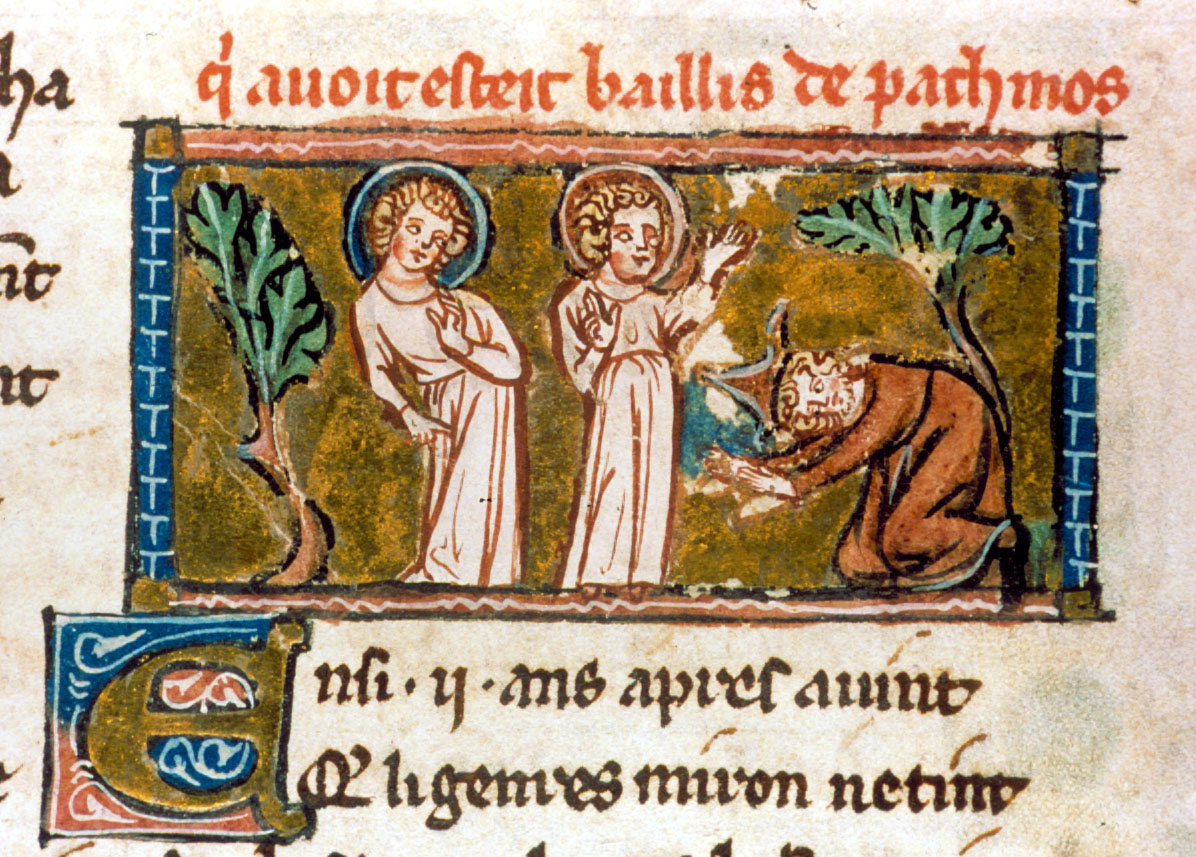 q̃ avoit esteit baillis de pathmos
ha
Ensi · ij · ans apres avint
Q̃ li genres miron ne tint